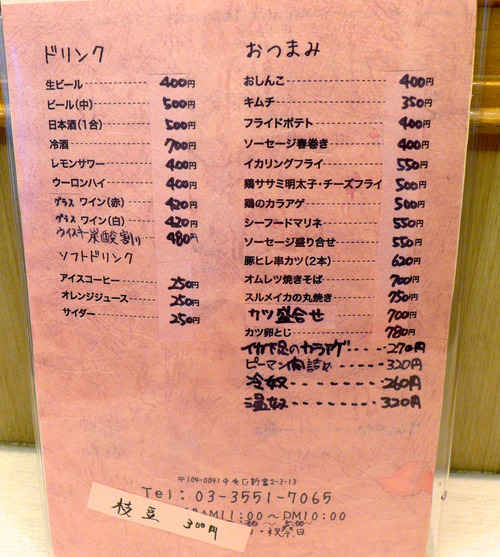 ドリンク
生ビール 400円
ビール(中) 500円
日本酒(1合) 500円
冷酒 700円
レモンサワー 400円
ウーロンハイ 400円
グラス ワイン(赤) 420円
グラス ワイン(白) 420円
ウイスキー炭酸割り 480円
ソフトドリンク
アイスコーヒー 250円
オレンジジュース 250円
サイダー 250円
おつまみ
おしんこ 400円
キムチ 350円
フライドポテト 400円
ソーセージ春巻き 400円
イカリングフライ 550円
鶏ササミ明太子・チーズフライ 500円
鶏のカラアゲ 500円
シーフードマリネ 550円
ソーセージ盛り合せ 550円
豚ヒレ串カツ(2本) 620円
オムレツ焼きそば 700円
スルメイカの丸焼き 750円
カツ盛合せ 700円
カツ卵とじ 780円
イカ下足のカラアゲ 270円
ピーマン肉詰め 320円
冷奴 260円
温奴 320円
〒104-0041中央区新富2-3-13
Tel:03-3551-7065
AM11:00~PM10:00
・祝祭日
枝豆 300円